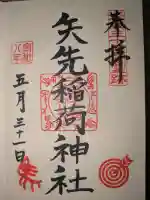 奉拝
矢先稲荷神社
五月三十一日